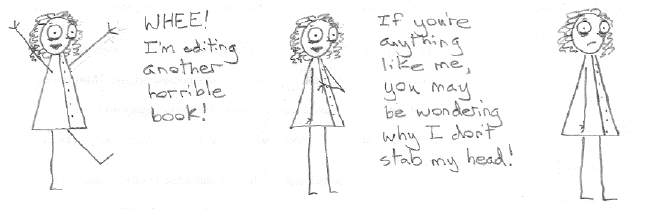 WHEE!
I'm editing
another
horrible
book!
If you're
anything
like me,
you may
be wondering
why I don't
stab my head!